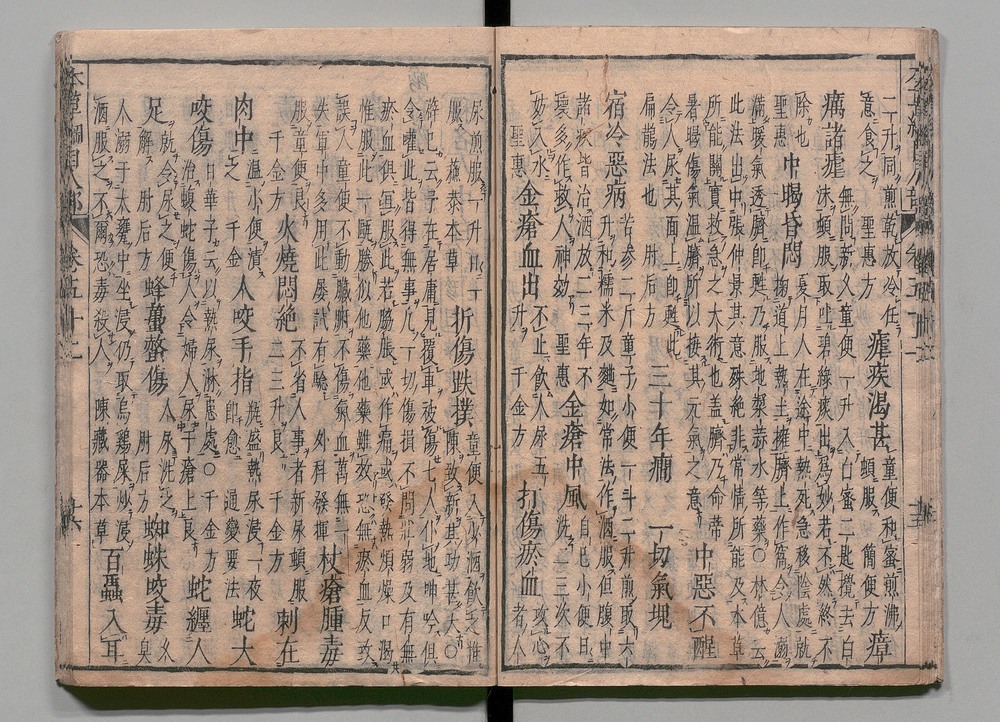 二升同煎乾放冷任意食之 聖惠方 瘧疾渴甚 童便和蜜煎沸頓服 簡便方 瘴
癘諸瘧 無問新久童便一升入白蜜二匙攪去白沫頓服取吐碧綠痰出爲妙若不然終不
除也 中暍昏悶 夏月人在途中熱死急移陰處就掬道上熱土擁臍上作窩令人溺
滿暖氣透臍即甦乃服地漿蒜水等藥○林億云此法出自張仲景其意殊絕非常情所能及本草
所能關實救急之大術也蓋臍乃命蒂暑暍傷氣溫臍所以接其元氣之意 中惡不醒
令人尿其面上即甦此扁鵲法也 肘后方 三十年癇 一切氣塊
宿冷惡病 苦參二斤童子小便一斗二升煎取六升和糯米及麴如常法作酒服但腹中
諸疾皆治酒放二三年不壞多作救人神效 聖惠 金瘡中風 自己小便日洗二三次不
妙入水 聖惠 金瘡血出 不止飲人尿五升 千金方 打傷瘀血 攻心者人
尿煎服一升日一服 蘇恭本草 折傷跌撲 童便入少酒飲之推陳致新其功甚大○
薛己云予在居庸見覆車被傷七人仆地呻吟俱令灌此皆得無事凡一切傷損不問壯弱及有無
瘀血俱宜服此若脇脹或作痛或發熱煩燥口渴惟服此一甌勝似他藥他藥雖效恐無瘀血反致
誤人童便不動臟腑不傷氣血萬無一失軍中多用此屢試有驗 外科發揮 杖瘡腫毒
服童便良 千金方 火燒悶絕 不省人事者新尿頓服二三升良 千金方 刺在
肉中 溫小便漬之 千金 人咬手指 瓶盛熱尿浸一夜即愈 通變要法 蛇犬
咬傷 日華子云以熱尿淋患處○千金方治蝮蛇傷人令婦人尿于瘡上良 蛇纏人
足 就令尿之便解 肘后方 蜂蠆螫傷 人尿洗之 肘后方 蜘蛛咬毒 久臭
人溺于大甕中坐浸仍取烏雞屎炒浸酒服之不爾恐毒殺人 陳藏器本草 百蟲入耳